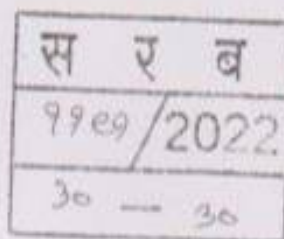 स र ब
११९७/2022
३० — ३०